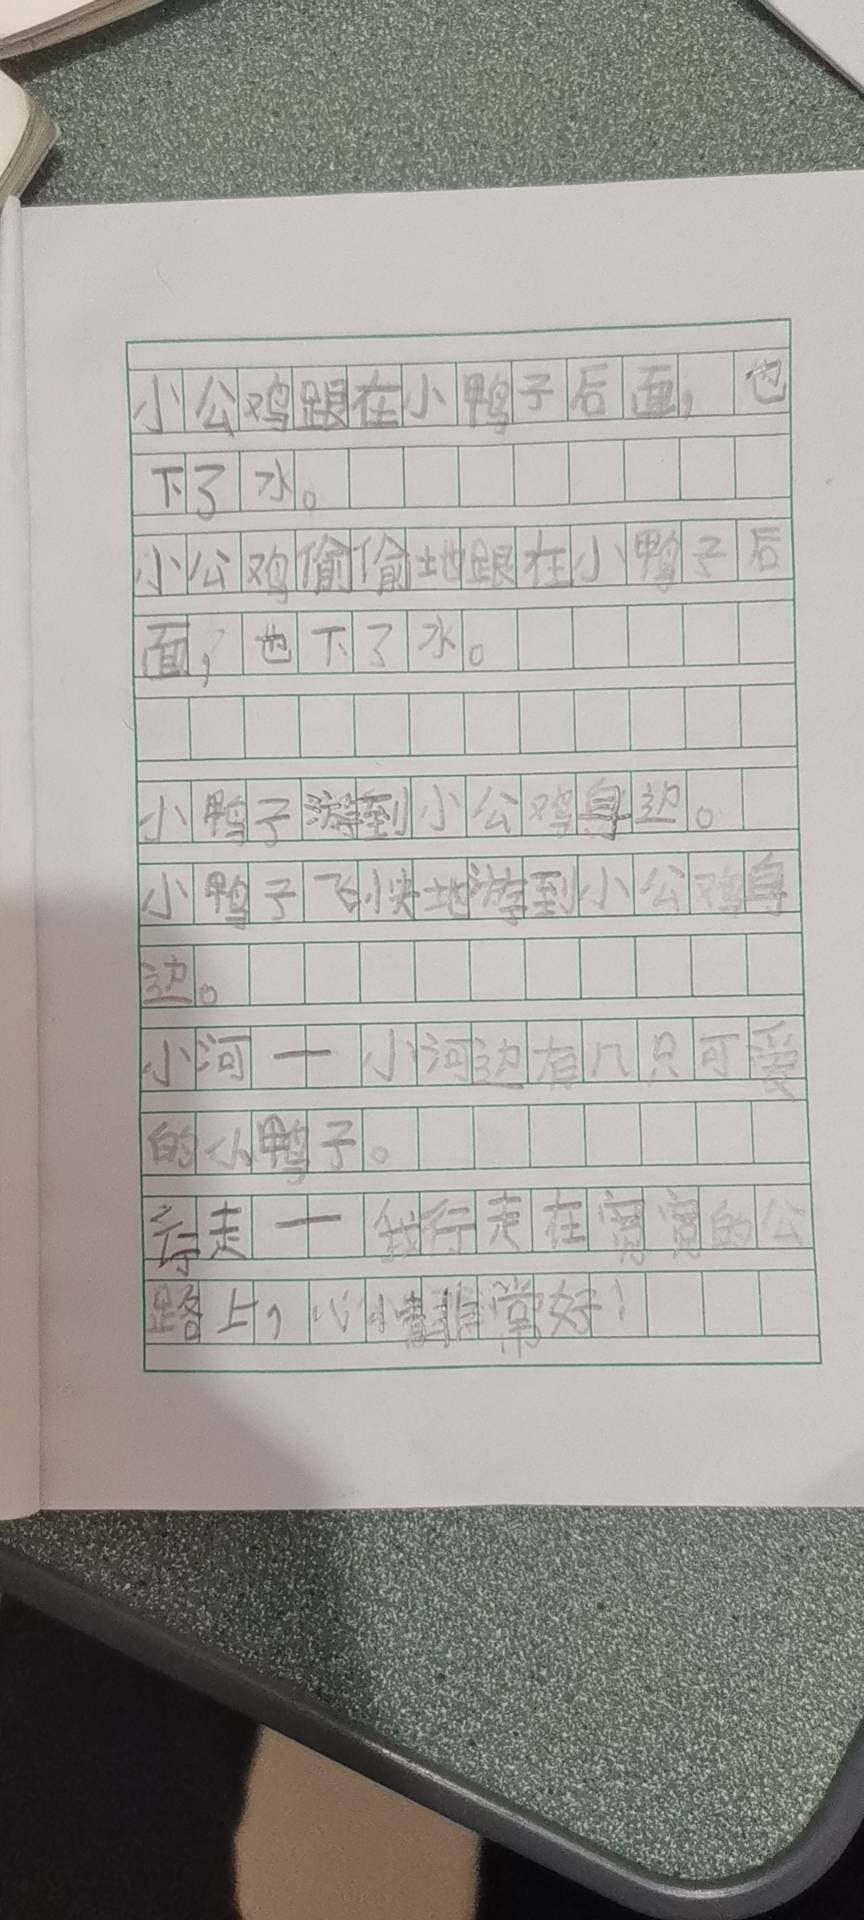 小公鸡跟在小鸭子后面，也
下了水。
小公鸡偷偷地跟在小鸭子后
面，也下了水。
小鸭子游到小公鸡身边。
小鸭子飞快地游到小公鸡身
边。
小河一小河边有几只可爱
的小鸭子。
行走一我行走在宽宽的公
路上，心情非常好！